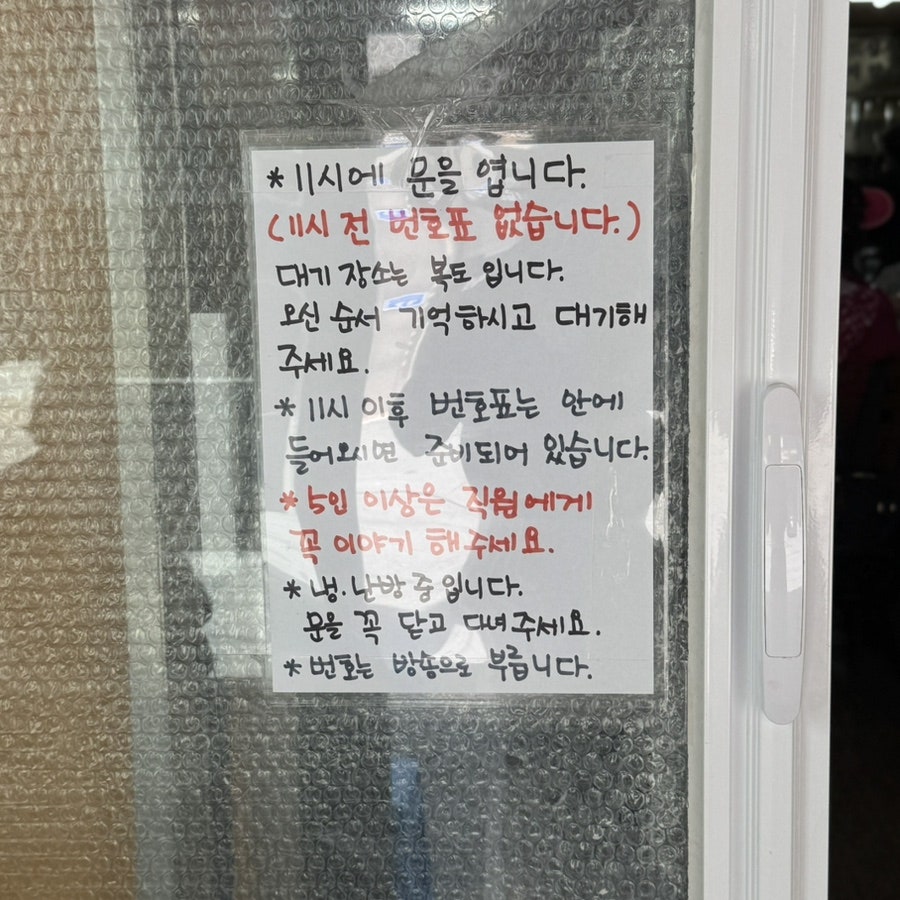 * 11시에 문을 엽니다.
(11시 전 번호표 없습니다.)
대기 장소는 복도 입니다.
오신 순서 기억하시고 대기해
주세요.
* 11시 이후 번호표는 안에
들어오시면 준비되어 있습니다.
* 5인 이상은 직원에게
꼭 이야기 해주세요.
* 냉.난방 중입니다.
문을 꼭 닫고 다녀주세요.
* 번호는 방송으로 부릅니다.